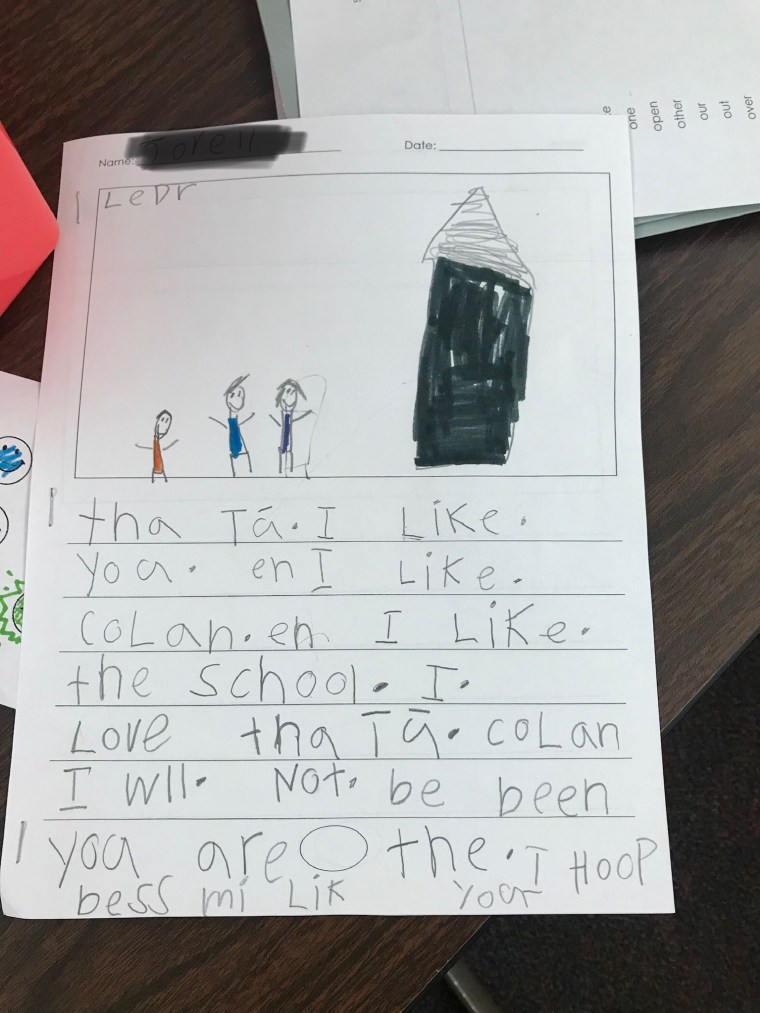 one
open
other
our
out
over
Name:
Date:
LeDr
tha Tā. I Like.
yoa. en I Like.
coLan. en I Like.
the school. I.
Love tha Tā. coLan
I wll. Not. be been
yoa are the. I HOOP
bess mi Lik yoar